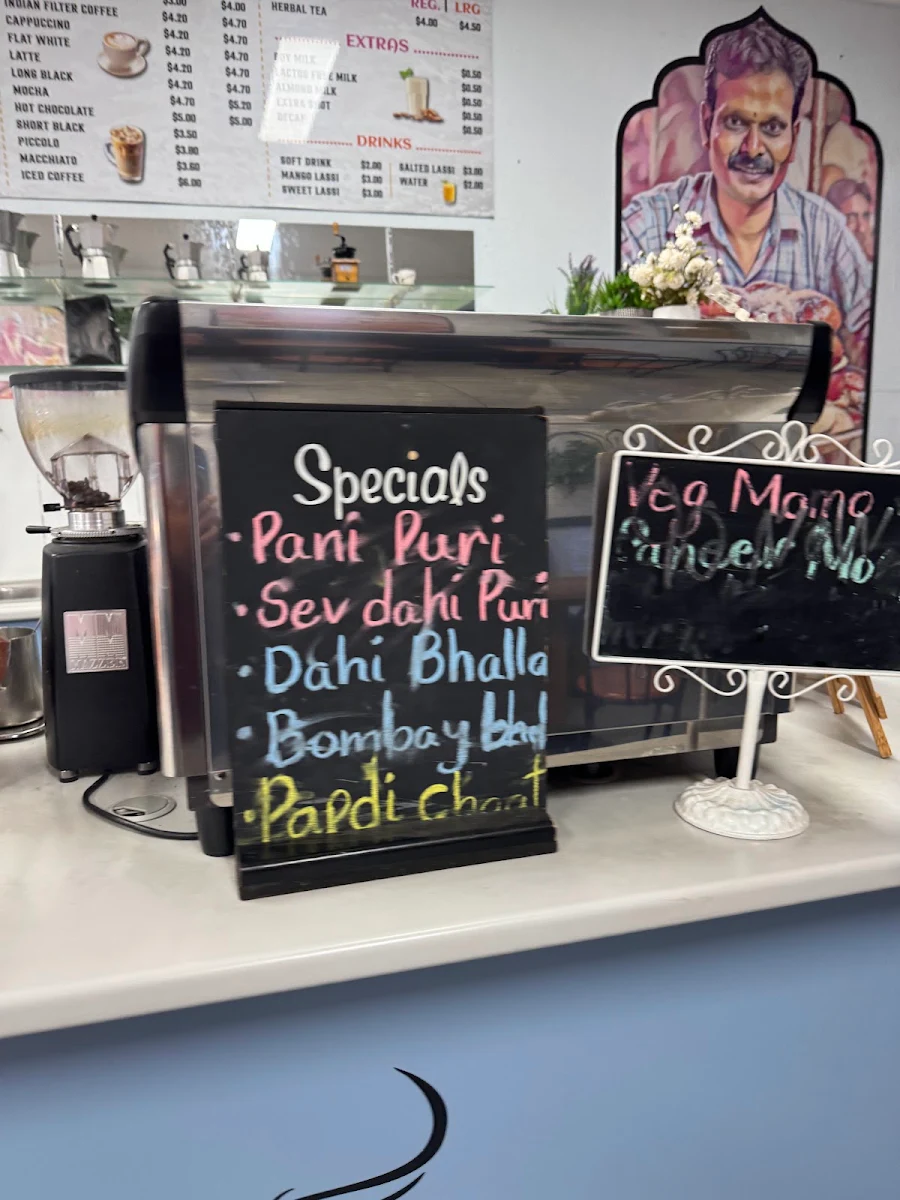 INDIAN FILTER COFFEE $3.00 $4.00
CAPPUCCINO $4.20 $4.70
FLAT WHITE $4.20 $4.70
LATTE $4.20 $4.70
LONG BLACK $4.20 $4.70
MOCHA $4.70 $5.20
HOT CHOCOLATE $5.00 $5.00
SHORT BLACK $3.50
PICCOLO $3.80
MACCHIATO $3.60
ICED COFFEE $6.00
REG. | LRG
HERBAL TEA $4.00 $4.50
EXTRAS
SOY MILK $0.50
LACTOS FREE MILK $0.50
ALMOND MILK $0.50
EXTRA SHOT $0.50
DECAF $0.50
DRINKS
SOFT DRINK $2.00
MANGO LASSI $3.00
SWEET LASSI $3.00
SALTED LASSI $3.00
WATER $2.00
Specials
• Pani Puri
• Sev dahi Puri
• Dahi Bhalla
• Bombay
• Papdi Chaat
Veg Momo
Paneer Mo